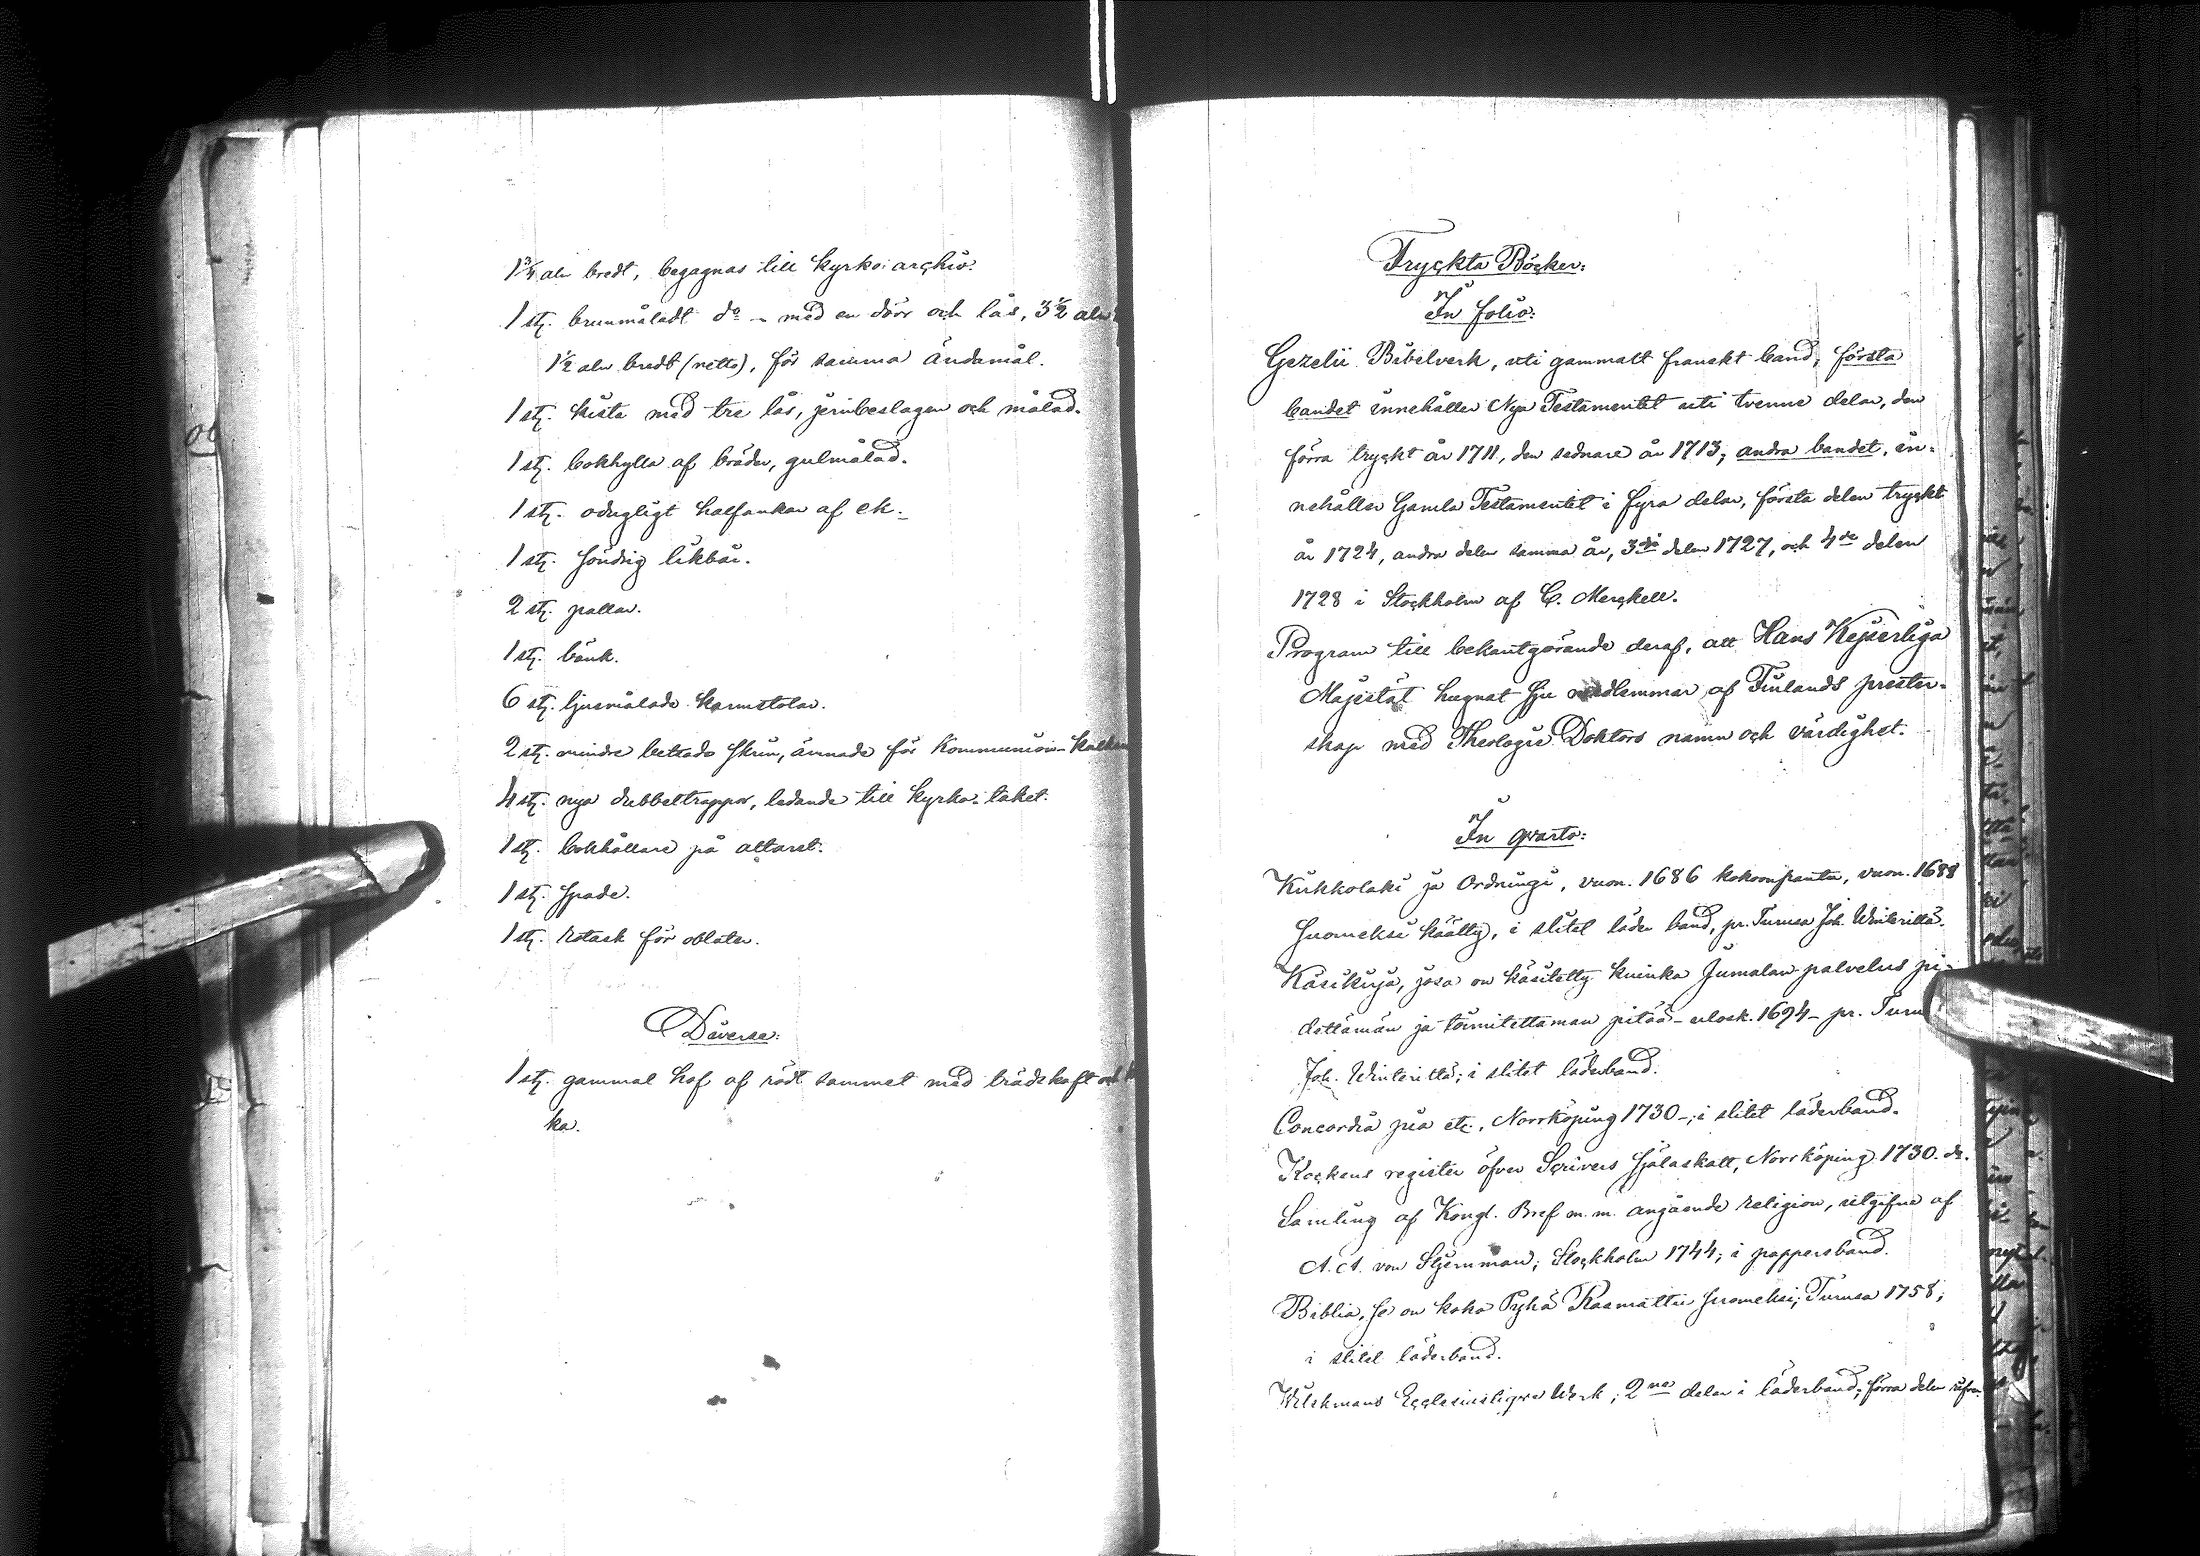 1 3/4 aln bredt, begagnas till kyrko: archiv.
1 st. brunmåladt do - med en dörr och lås, 3 1/2 aln
1 1/2 aln bredt (netto), för samma ändamål.
1 st. kista med tre lås, jernbeslagen och målad.
1 st. bokhylla af bräder, gulmålad.
1 st. odugligt halfankar af ek.
1 st. söndrig likbår.
2 st. pallar.
1 st. bänk.
6 st. ljusmålade karmstolar.
2 st. mindre bettade skrin, ämnade för Kommunion-
4 st. nya dubbeltrappor, ledande till kyrko: taket.
1 st. bokhållare på altaret.
1 st. spade.
1 st. ask för oblater.
Diverse:
1 st. gammal håf af rödt sammet med trädskaft och
ka.
Tryckta Böcker:
In folio:
Gezelii Bibelverk, uti gammalt franskt band, första
bandet innehåller Nya Testamentet uti tvenne delar, den
förra tryckt år 1711, den sednare år 1713; andra bandet, in-
nehåller Gamla Testamentet i fyra delar, första delen tryckt
år 1724, andra delen samma år, 3dje delen 1727, och 4de delen
1728 i Stockholm af C. Merckell.
Program till bekantgörande deraf, att Hans Kejserliga
Majestät hugnat sju medlemmar af Finlands prester-
skap med Theologie Doktors namn och värdighet.
In qvarto:
Kirkkolaki ja Ordningi, vuon. 1686 kokoonpantu, vuon. 1688
Suomeksi käätty, i slitet läder band, pr. Turusa Joh. Winterildä.
Käsikirja, josa on käsitetty kuinka Jumalan palvelus pi-
dettämän ja toimitettaman pitää - ulosk. 1694 - pr. Turu
Joh. Winterildä; i slitet läderband.
Concordia pia etc., Norrköping 1730 -; i slitet läderband.
Kockens register öfver Scrivers Själaskatt, Norrköping 1730. do.
Samling af Kongl. Bref m. m. angående religion, utgifne af
A. A. von Stjernman; Stockholm 1744; i pappersband.
Biblia, se on koko Pyhä Raamattu suomeksi; Turusa 1758;
i slitet läderband.
Wilskmans Ecclesiastique Werk; 2ne delar i läderband; förra delen